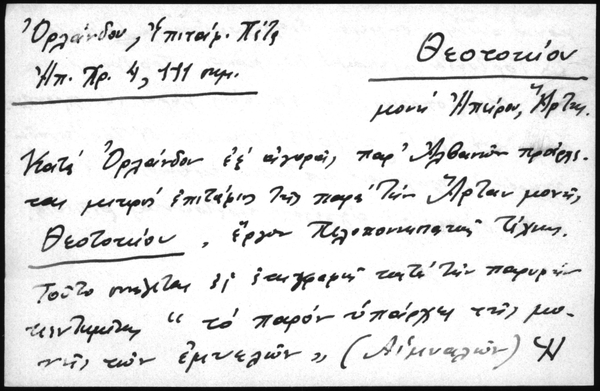 Ὀρλάνδου, Ἐπιτάφ. Πέτα
Ἠπ. Χρ. 4, 111 σημ.
Θεοτοκίου
μονὴ Ἠπείρου, Ἄρτης.
Κατὰ Ὀρλάνδον ἐξ ἀγορᾶς παρ' Ἀλβανῶν προέρχε-
ται μικρὸς ἐπιτάφιος τῆς παρὰ τὴν Ἄρταν μονῆς
Θεοτοκίου, ἔργον Πελοποννησιακῆς τέχνης.
Τοῦτο συνάγεται ἐξ ἐπιγραφῆς κατὰ τὴν παρυφὴν
κεντημένης " τὸ παρὸν ὑπάρχει τῆς μο-
νῆς τῶν ἐμυαλῶν " (Αἰμυαλῶν)